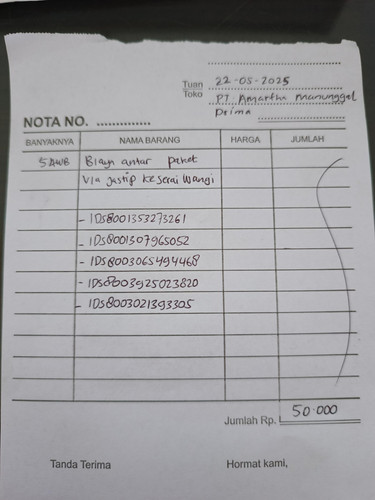 22-05-2025
Tuan
Toko
PT. Amartha Manunggal
Prima
NOTA NO. ..............
BANYAKNYA NAMA BARANG HARGA JUMLAH
5 AWB Biaya antar paket
Via jastip ke Serai Wangi
- IDS8001353273261
- IDS8001307965052
- IDS8003065494468
- IDS8003925023820
- IDS8003021393305
Jumlah Rp. 50.000
Tanda Terima Hormat kami,